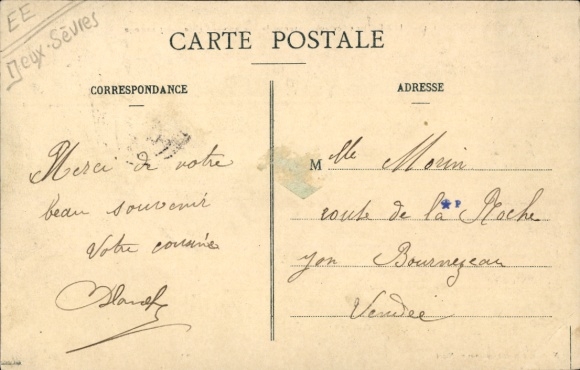 EE
Deux-Sèvres
CARTE POSTALE
CORRESPONDANCE
Merci de votre
beau souvenir
Votre cousine
ADRESSE
Mlle Morin
route de la Roche
yon Bournezeau
Vendée